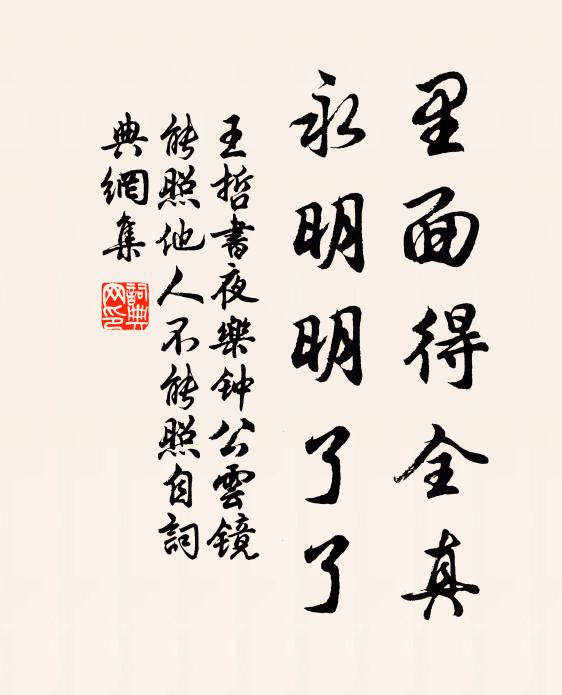 里面得全真
永明明了了
王哲書夜樂钟公雲镜
能照他人不能照自詞
典網集
詞典
网印